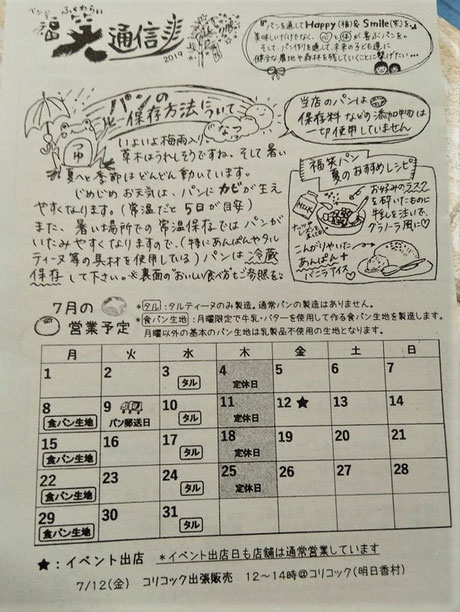 パンとふくわらい
福笑通信
2019
『パンを通してHappy(福)&Smile(笑)を
美味しいだけでなく、心と体が喜ぶパンを
そして、パン作りを通して、未来の子ども達に
健全な農地や森林を残していくことに繋げたい…
パンの
保存方法について
つゆ
なつ
当店のパンは
保存料などの添加物は
一切使用していません
いよいよ梅雨入り、
草木はうれしそうですね、そして暑い
夏へと季節はどんどん動いています。
じめじめお天気は、パンにカビが生え
やすくなります。(常温だと5日が目安)
また、暑い場所での常温保存ではパンが
いたみやすくなりますので、(特にあんぱんやタル
ティーヌ等の具材を使用している)パンは冷蔵
保存して下さい。※裏面のおいしい食べ方もご参照を
福笑パン
夏のおすすめレシピ
MILK
お好みのラスク
を砕いたものに
牛乳を注いで、
グラノーラ風に♡
こんがりやいた
あんぱん+
バニラアイス♡
7月の
営業予定
*タル:タルティーヌのみ製造。通常パンの製造はありません。
*食パン生地:月曜限定で牛乳・バターを使用して作る食パン生地を製造します。
月曜以外の基本のパン生地は乳製品不使用の生地となります。
月 火 水 木 金 土 日
1 2 3 タル 4 定休日 5 6 7
8 食パン生地 9 パン郵送日 10 タル 11 定休日 12★ 13 14
15 食パン生地 16 17 タル 18 定休日 19 20 21
22 食パン生地 23 24 タル 25 定休日 26 27 28
29 食パン生地 30 31 タル
★:イベント出店 *イベント出店日も店舗は通常営業しています
7/12(金) コリコック出張販売 12~14時@コリコック(明日香村)